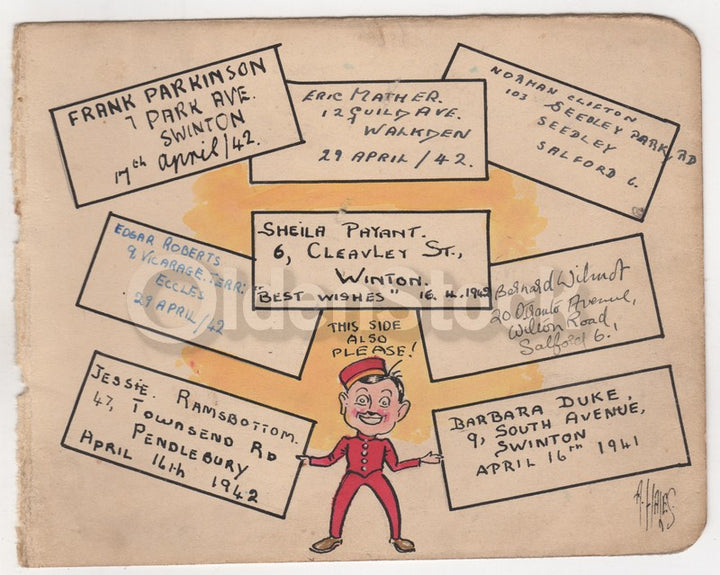 FRANK PARKINSON
7 PARK AVE.
SWINTON
17th April/42.
ERIC MATHER.
12 GUILD AVE.
WALKDEN
29 APRIL/42.
NORMAN CLIFTON
103 SEEDLEY PARK RD
SEEDLEY
SALFORD 6.
EDGAR ROBERTS
9, VICARAGE TERR:
ECCLES
29 APRIL/42
SHEILA PAYANT.
6, CLEAVLEY ST.,
WINTON.
"BEST WISHES" 16.4.1942
Bernard Wilmot
20 Avenue,
Wilton Road,
Salford 6,
THIS SIDE
ALSO
PLEASE!
JESSIE. RAMSBOTTOM.
47, TOWNSEND RD
PENDLEBURY
APRIL 16th 1942
BARBARA DUKE,
9, SOUTH AVENUE,
SWINTON
APRIL 16TH 1941
A. HALES.
OldenStock